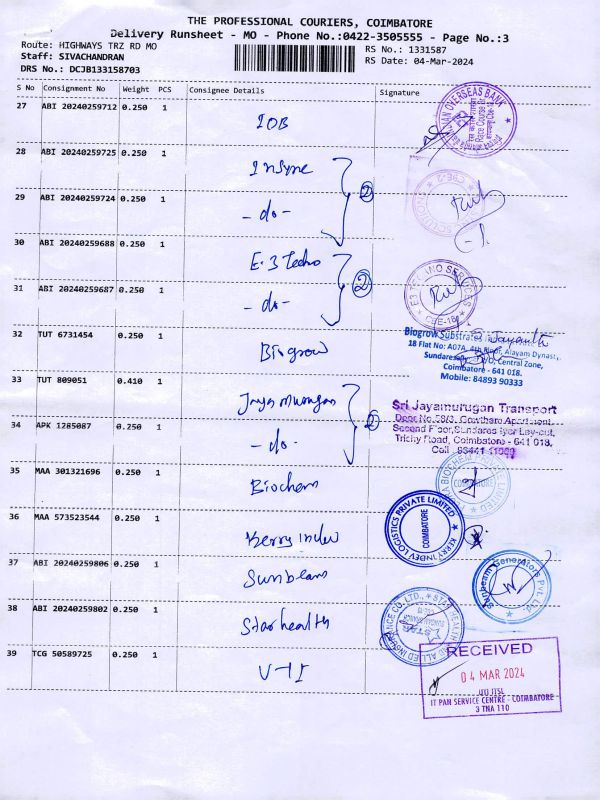 THE PROFESSIONAL COURIERS, COIMBATORE
Delivery Runsheet - MO - Phone No.:0422-3505555 - Page No.:3
Route: HIGHWAYS TRZ RD MO
RS No.: 1331587
Staff: SIVACHANDRAN
RS Date: 04-Mar-2024
DRS No.: DCJB133158703
S No Consignment No Weight PCS Consignee Details Signature
27 ABI 20240259712 0.250 1 IOB
28 ABI 20240259725 0.250 1 Insyne
29 ABI 20240259724 0.250 1 -do- ②
30 ABI 20240259688 0.250 1 E-3 Techno
31 ABI 20240259687 0.250 1 -do- ②
CBE-18
32 TUT 6731454 0.250 1 Biogrow
Biogrow Substrates
18 Flat No: A07A, 4th Floor, Alayam Dynasty,
Central Zone,
Coimbatore - 641 018.
Mobile: 84893 90333
33 TUT 809051 0.410 1 Jaya Murugan
34 APK 1285087 1 -do- ②
Sri Jayamurugan Transport
Second Floor, Sundares Iyer Lay-out,
Trichy Road, Coimbatore - 641 018,
35 MAA 301321696 0.250 1 Biochem
36 MAA 573523544 0.250 1 Kerry Indev
KERRY INDEV LOGISTICS PRIVATE LIMITED
COIMBATORE
37 ABI 20240259806 0.250 1 Sunbeam
Sunbeam Generators Pvt. Ltd
38 ABI 20240259802 0.250 1 Star health
STAR HEALTH AND ALLIED INSURANCE CO. LTD.,
39 TCG 50589725 0.250 1 UTI
RECEIVED
04 MAR 2024
UTI ITSL
IT PAN SERVICE CENTRE - COIMBATORE
3 TNA 110